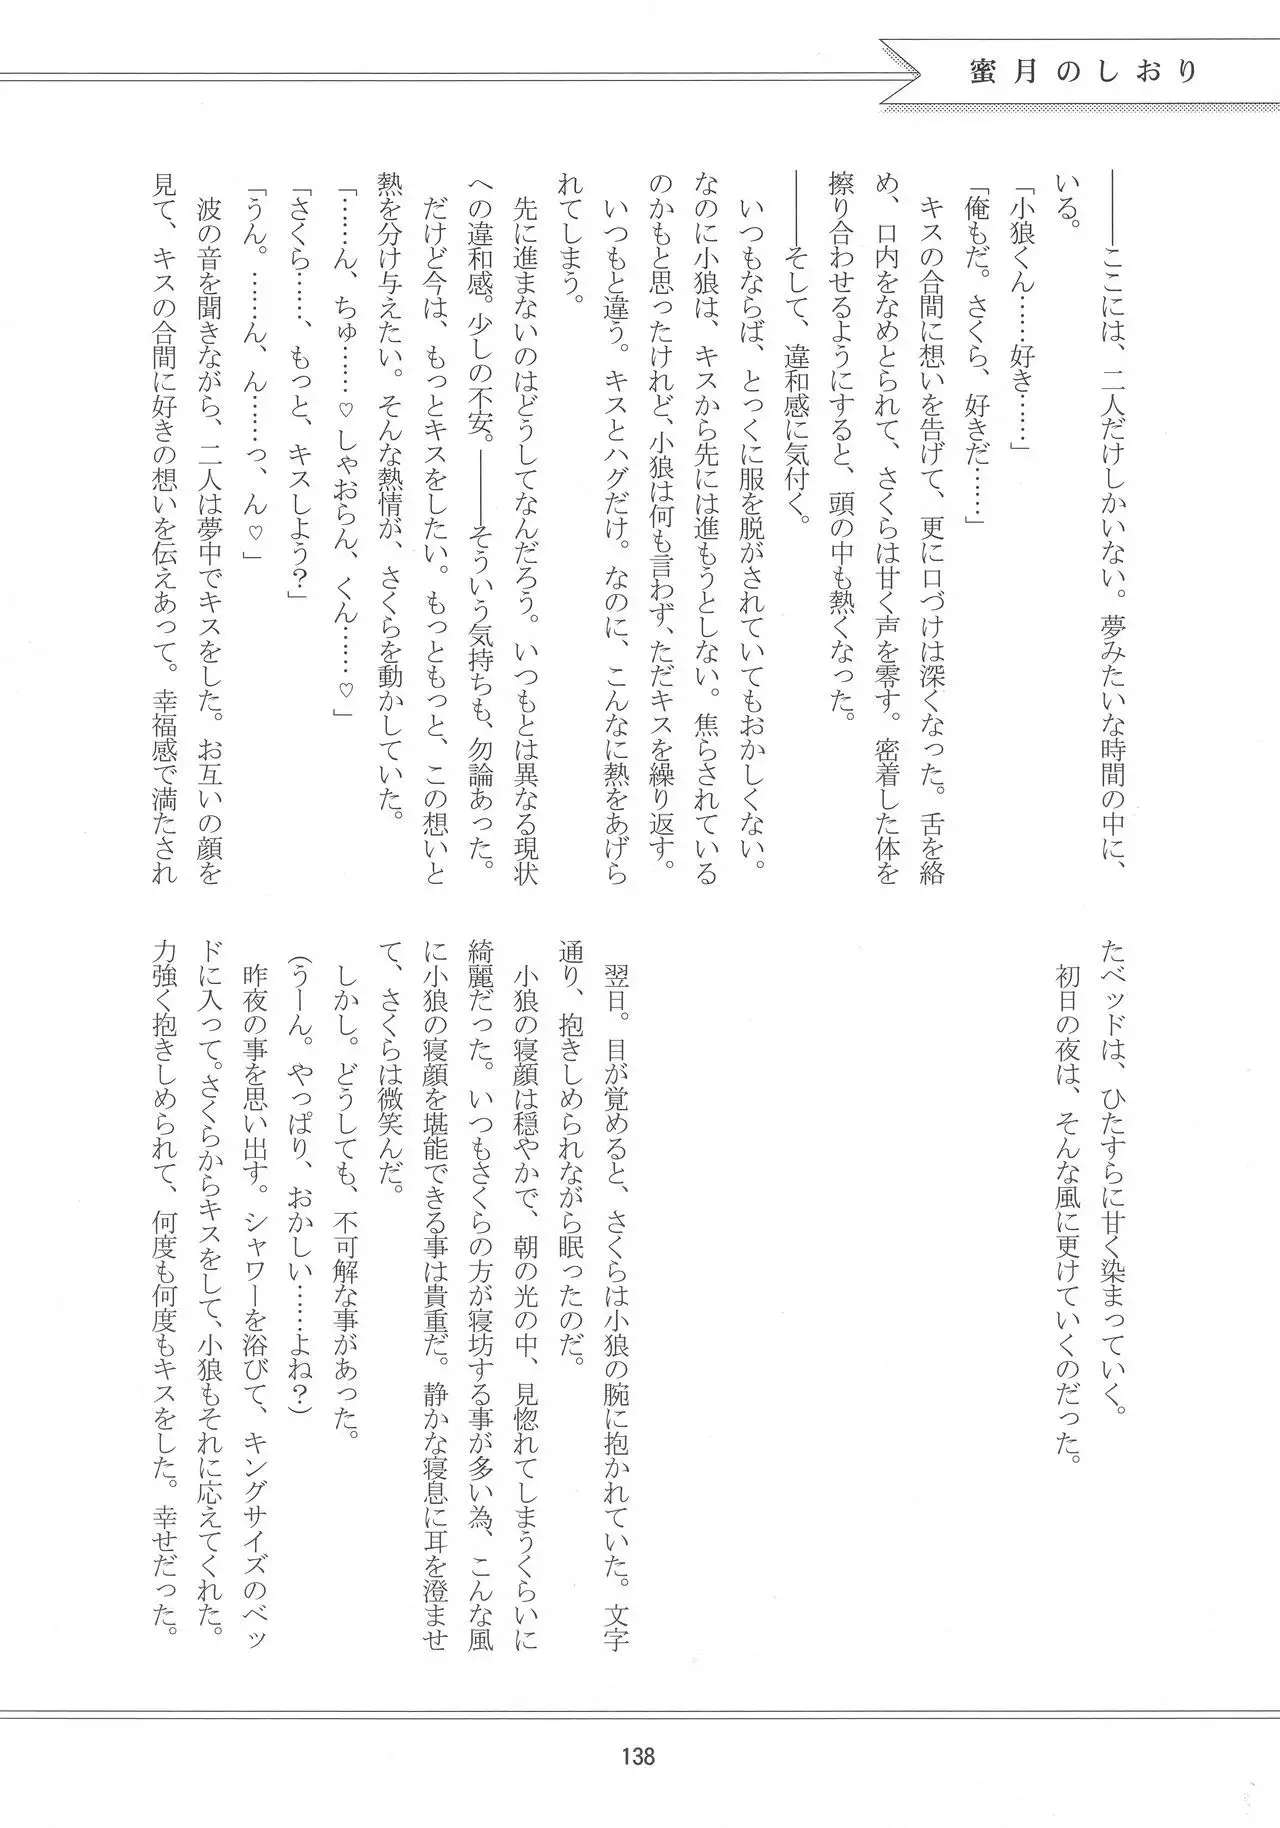 蜜月のしおり
――ここには、二人だけしかいない。夢みたいな時間の中に、
いる。
「小狼くん……好き……」
「俺もだ。さくら、好きだ……」
キスの合間に想いを告げて、更に口づけは深くなった。舌を絡
め、口内をなめとられて、さくらは甘く声を零す。密着した体を
擦り合わせるようにすると、頭の中も熱くなった。
――そして、違和感に気付く。
いつもならば、とっくに服を脱がされていてもおかしくない。
なのに小狼は、キスから先には進もうとしない。焦らされている
のかもと思ったけれど、小狼は何も言わず、ただキスを繰り返す。
いつもと違う。キスとハグだけ。なのに、こんなに熱をあげら
れてしまう。
先に進まないのはどうしてなんだろう。いつもとは異なる現状
への違和感。少しの不安。――そういう気持ちも、勿論あった。
だけど今は、もっとキスをしたい。もっともっと、この想いと
熱を分け与えたい。そんな熱情が、さくらを動かしていた。
「……ん、ちゅ……♡しゃおらん、くん……♡」
「さくら……、もっと、キスしよう？」
「うん。……ん、ん……っ、ん♡」
波の音を聞きながら、二人は夢中でキスをした。お互いの顔を
見て、キスの合間に好きの想いを伝えあって。幸福感で満たされ
たベッドは、ひたすらに甘く染まっていく。
初日の夜は、そんな風に更けていくのだった。
翌日。目が覚めると、さくらは小狼の腕に抱かれていた。文字
通り、抱きしめられながら眠ったのだ。
小狼の寝顔は穏やかで、朝の光の中、見惚れてしまうくらいに
綺麗だった。いつもさくらの方が寝坊する事が多い為、こんな風
に小狼の寝顔を堪能できる事は貴重だ。静かな寝息に耳を澄ませ
て、さくらは微笑んだ。
しかし。どうしても、不可解な事があった。
（うーん。やっぱり、おかしい……よね？）
昨夜の事を思い出す。シャワーを浴びて、キングサイズのベッ
ドに入って。さくらからキスをして、小狼もそれに応えてくれた。
力強く抱きしめられて、何度も何度もキスをした。幸せだった。
138